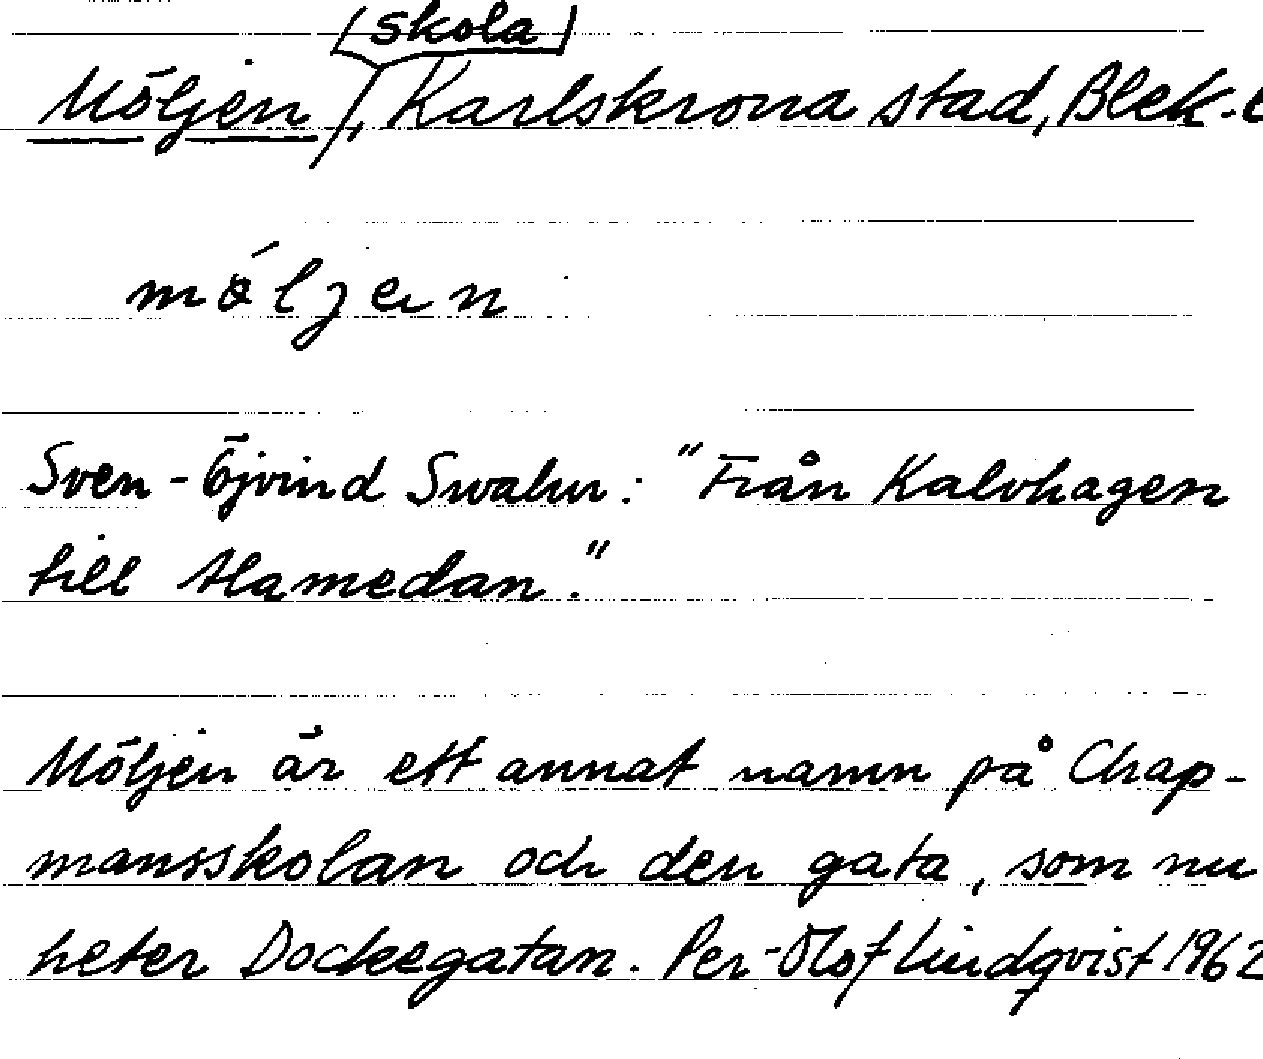 (skola)
Möljen, Karlskrona stad, Blek. l
möljen
Sven-Öjvind Swahn: "Från Kalvhagen
till Alamedan."
Möljen är ett annat namn på Chap-
mansskolan och den gata, som nu
heter Dockegatan. Per-Olof Lindqvist 1962